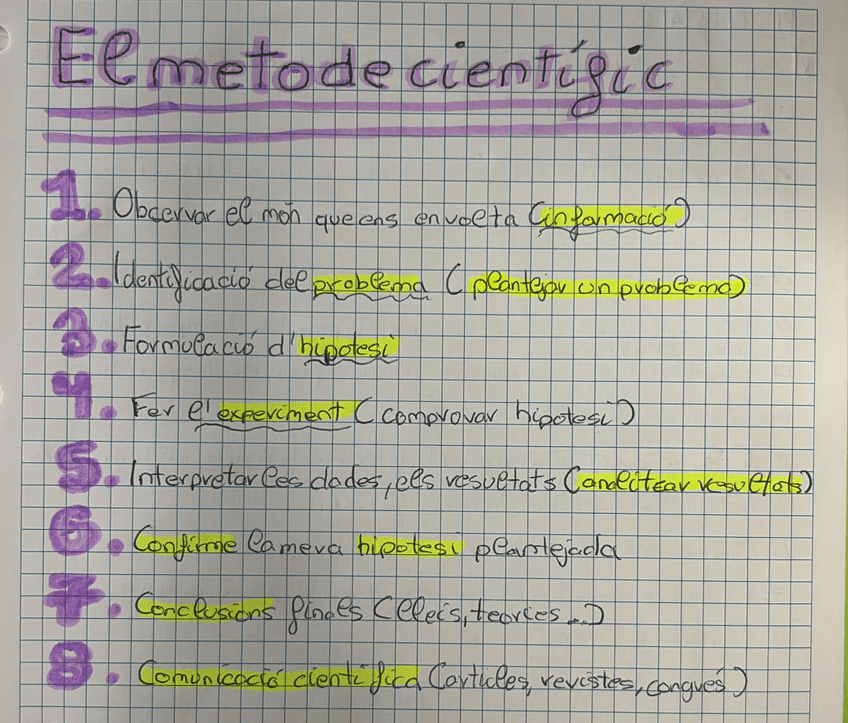 El metode científic
1. Observar el món que ens envolta (informació)
2. Identificació del problema (plantejar un problema)
3. Formulació d'hipotesi
4. Fer el experiment (comprovar hipotesi)
5. Interpretar les dades, els resultats (analitzar resultats)
6. Confirme la meva hipotesi plantejada
7. Conclusions finals (lleis, teories...)
8. Comunicació científica (articles, revistes, congués)